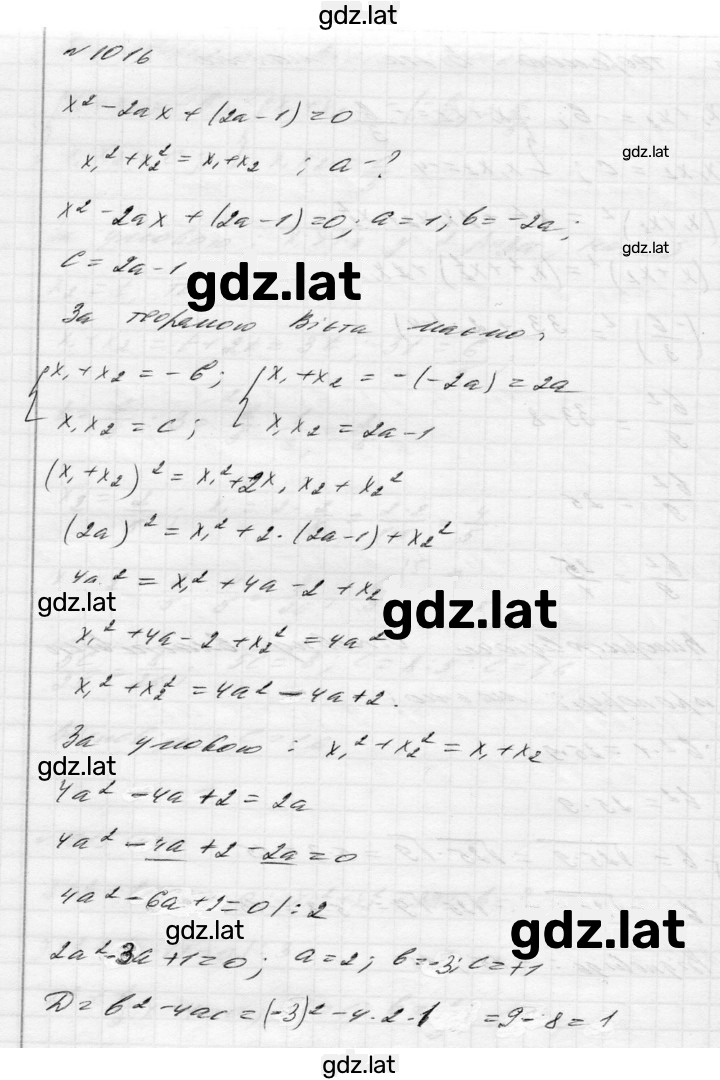 gdz.lat
№ 1016
x² - 2ax + (2a - 1) = 0
x₁² + x₂² = x₁ + x₂ ; a - ?
gdz.lat
x² - 2ax + (2a - 1) = 0; a = 1; b = -2a;
gdz.lat
c = 2a - 1
gdz.lat
За теоремою Вієта маємо:
x₁ + x₂ = -b; x₁ + x₂ = -(-2a) = 2a
x₁x₂ = c; x₁x₂ = 2a - 1
(x₁ + x₂)² = x₁² + 2x₁x₂ + x₂²
(2a)² = x₁² + 2·(2a - 1) + x₂²
4a² = x₁² + 4a - 2 + x₂
gdz.lat
gdz.lat
x₁² + 4a - 2 + x₂² = 4a²
x₁² + x₂² = 4a² - 4a + 2.
За умовою: x₁² + x₂² = x₁ + x₂
gdz.lat
4a² - 4a + 2 = 2a
4a² - 4a + 2 - 2a = 0
4a² - 6a + 2 = 0 /: 2
gdz.lat
gdz.lat
2a² - 3a + 1 = 0; a = 2; b = -3; c = +1
D = b² - 4ac = (-3)² - 4·2·1 = 9 - 8 = 1
gdz.lat